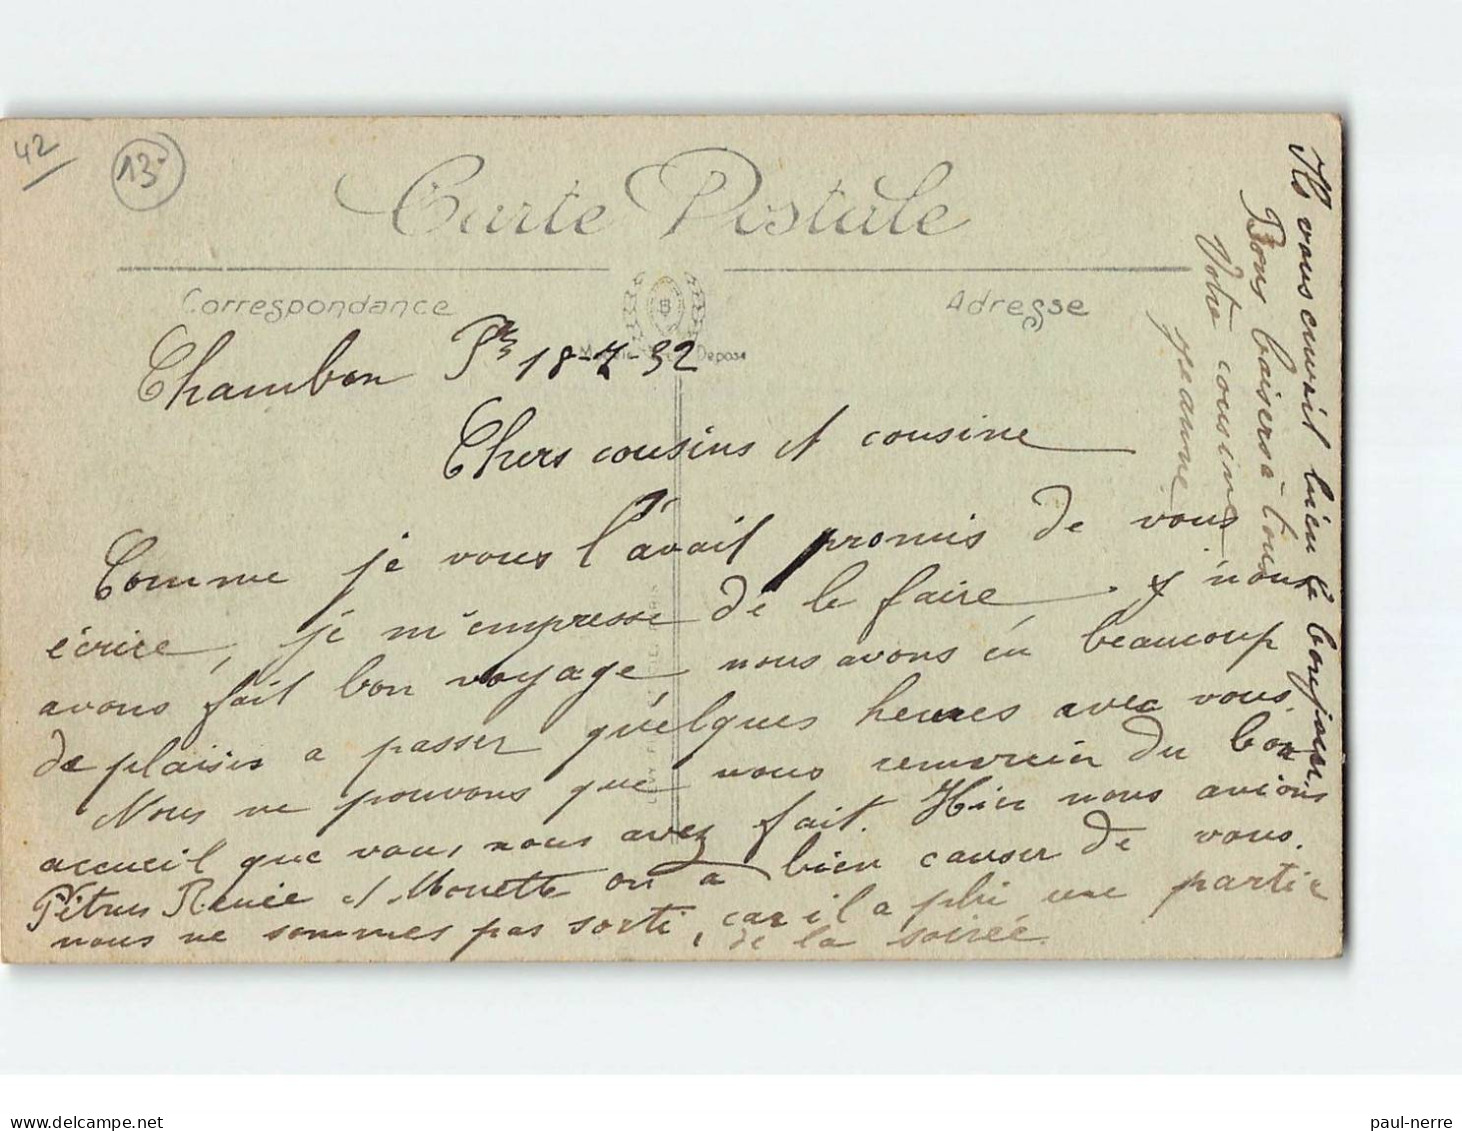 42
13
Carte Postale
Correspondance
Adresse
B
Depose
Chambon 18-7-32
Chers cousins et cousine
Comme je vous l'avait promis de vous
écrire, je m'empresse de le faire. nous
avons fait bon voyage nous avons eu beaucoup
de plaisir a passer quelques heures avec vous.
Nous ne pouvons que vous remercier du bon
accueil que vous nous avez fait. Hier nous avions
Pétrus Renée et Mouette on a bien causer de vous.
nous ne sommes pas sorti, car il a plu une partie
de la soirée.
Ils vous envoit bien le bonjour
Bons baisers a tous
Votre cousine
Jeanne
paul-nerre
delcampe.net